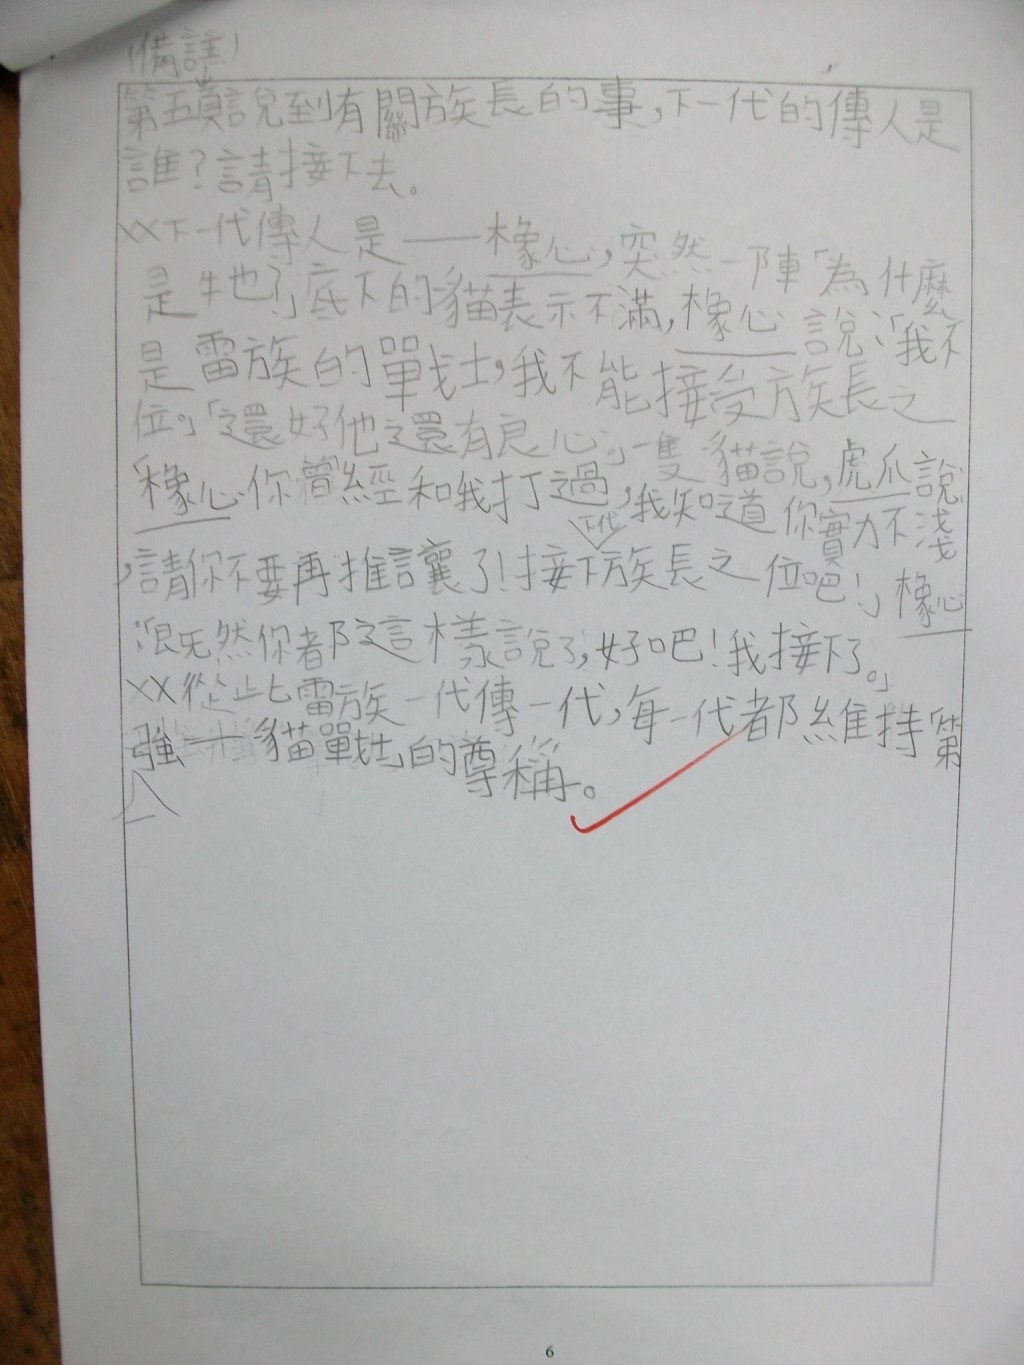 (備註)
第五頁說到有關族長的事,下一代的傳人是
誰?請接下去。
XX下一代傳人是——橡心,突然一陣「為什麼
是牠?」底下的貓表示不滿,橡心說:「我不
是雷族的戰士,我不能接受族長之
位。」「還好他還有良心。」一隻貓說,虎爪說
「橡心你曾經和我打過,我知道你實力不淺
,請你不要再推讓了!接下下代族長之位吧!」橡心
:「既然你都這樣說了,好吧!我接下了。」
XX從此雷族一代傳一代,每一代都維持「第
強一貓戰士」的尊稱。
6